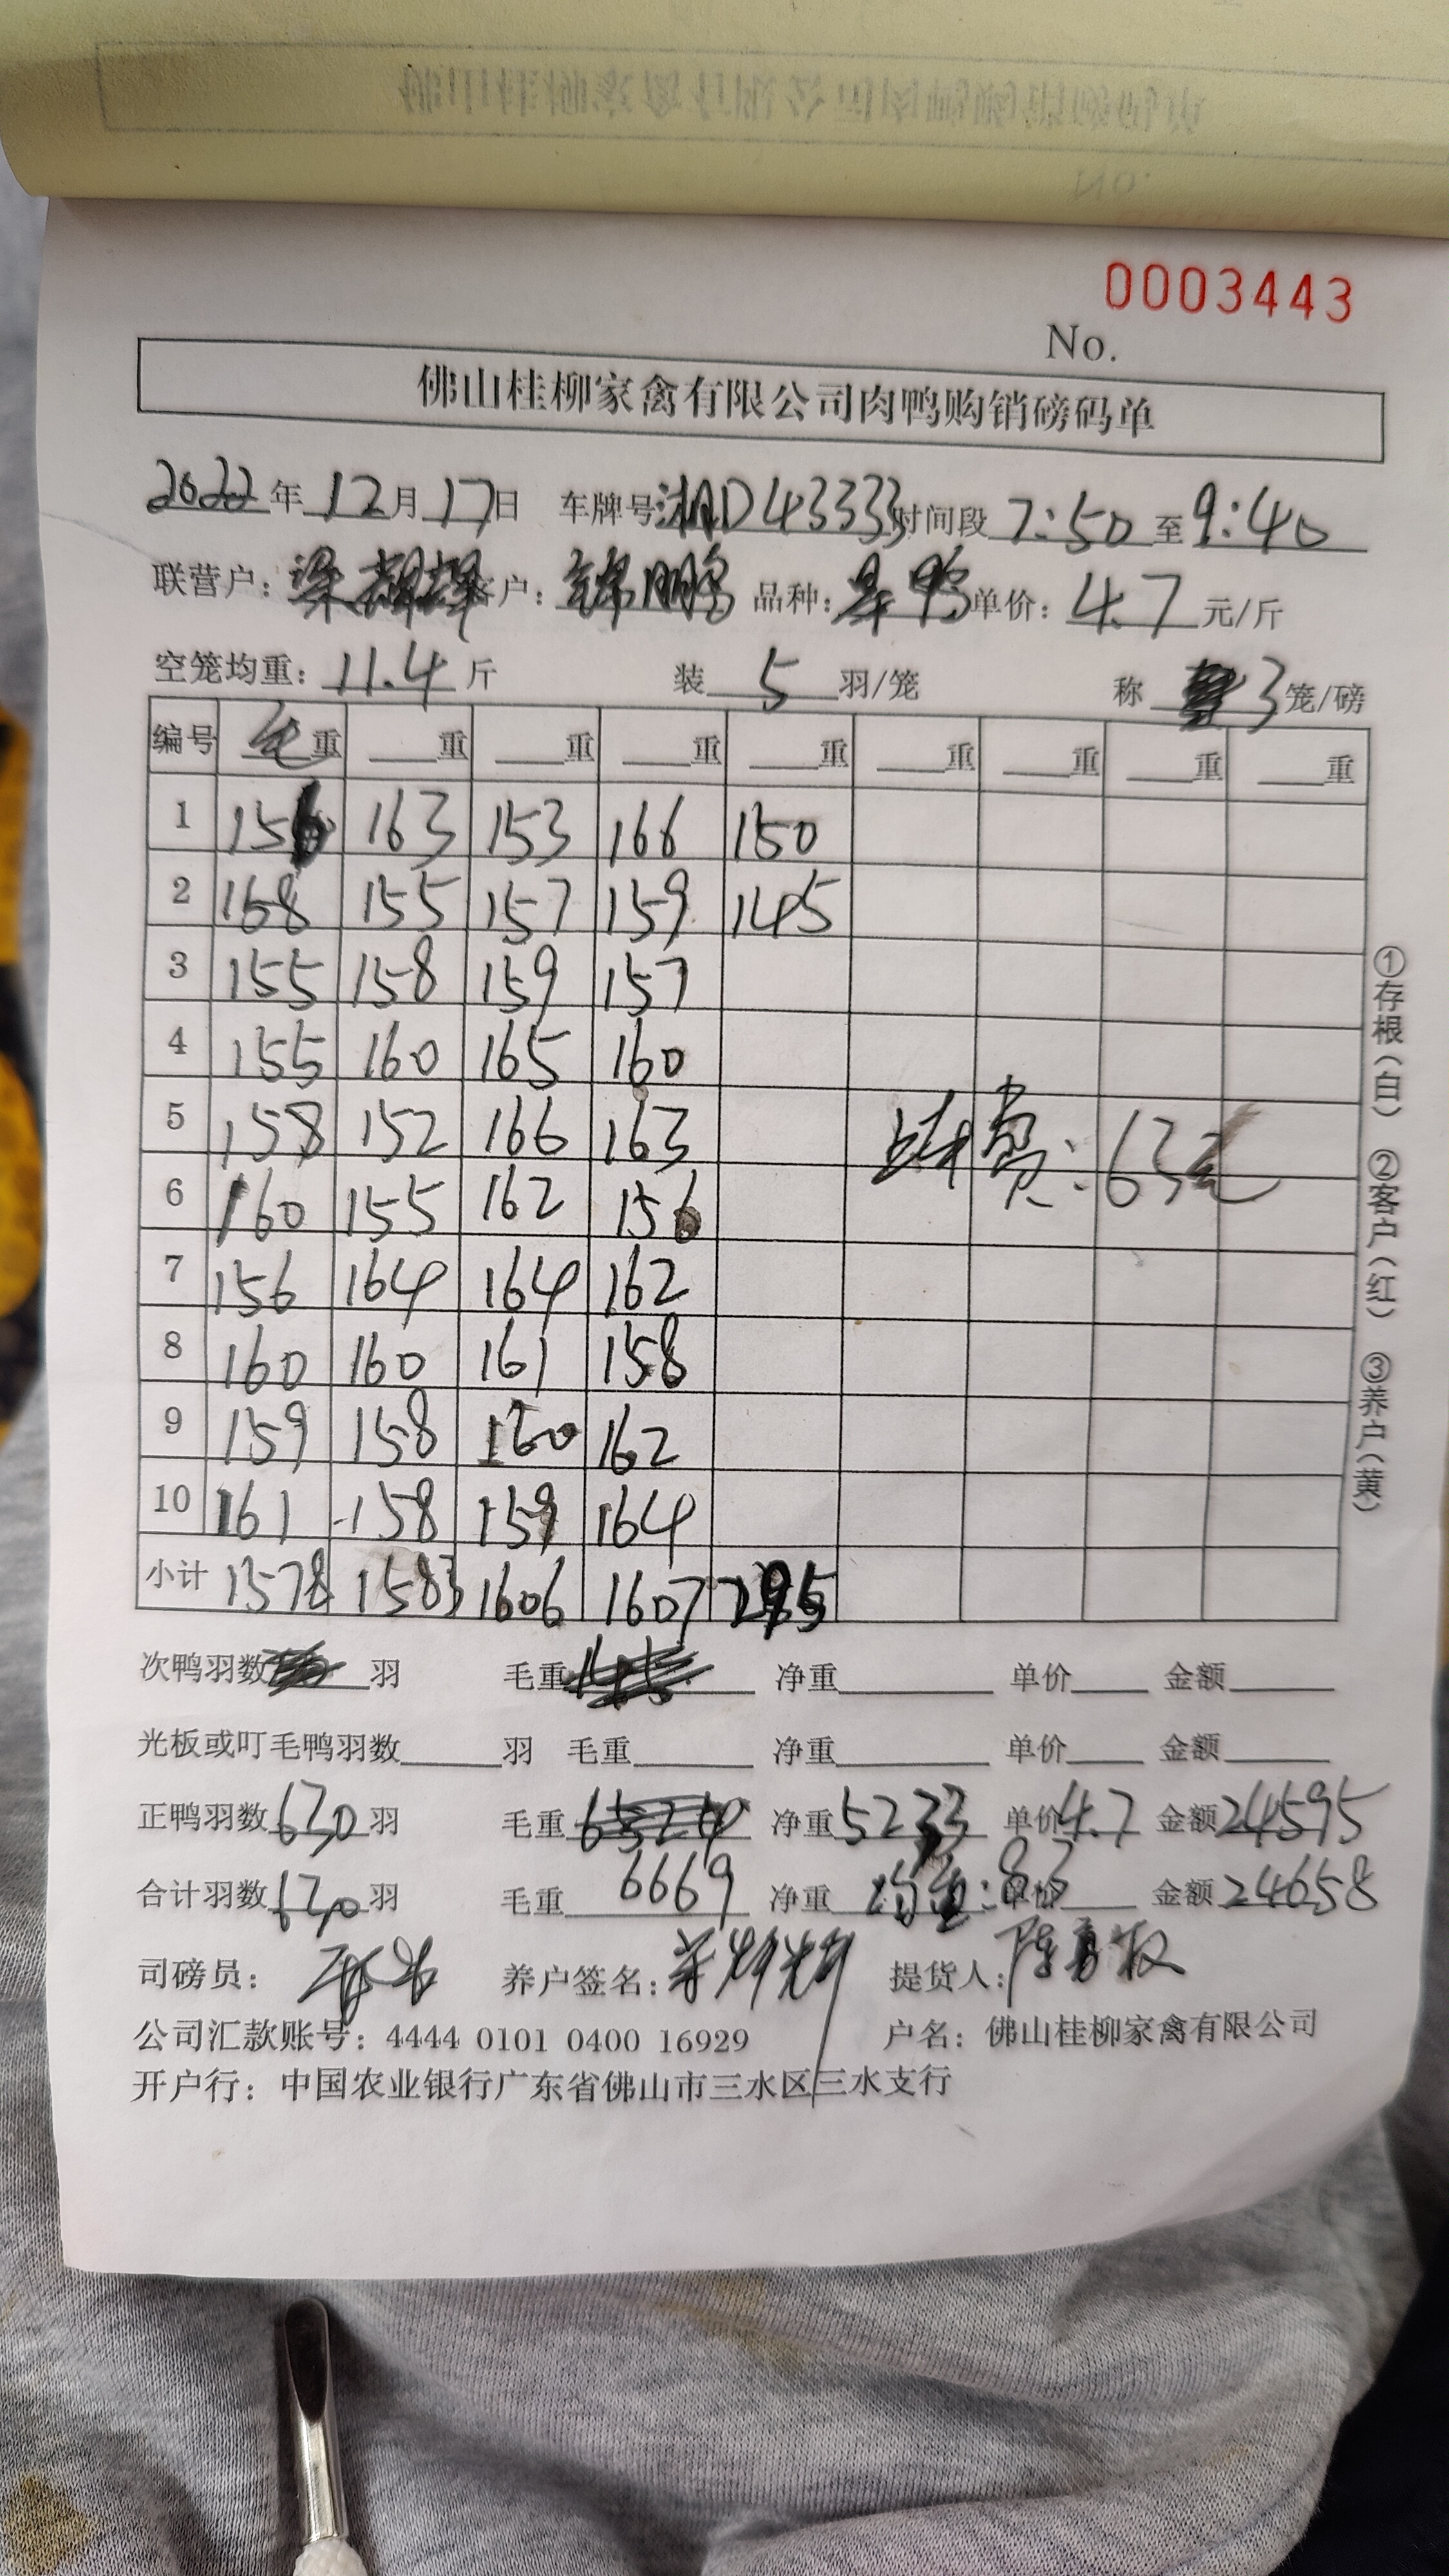 0003443
No.
佛山桂柳家禽有限公司肉鸭购销磅码单
2022年12月17日 车牌号湘D43333时间段7:50至9:40
联营户：梁 客户：锦鹏 品种：鸭 单价：4.7元/斤
空笼均重：11.4斤 装5羽/笼 称3笼/磅
编号 毛重 重 重 重 重 重 重 重 重
1 156 163 153 166 150
2 158 155 157 159 145
3 155 158 159 157
4 155 160 165 160
5 158 152 166 163
费：63元
6 160 155 162 156
7 156 164 164 162
8 160 160 161 158
9 159 158 160 162
10 161 158 159 164
小计 1578 1583 1606 1607 295
次鸭羽数 羽 毛重 净重 单价 金额
光板或叮毛鸭羽数 羽 毛重 净重 单价 金额
正鸭羽数630羽 毛重 净重5233 单价4.7 金额24595
合计羽数630羽 毛重6669 净重 均重：8.3 单价 金额24658
司磅员： 养户签名： 提货人：陈
公司汇款账号：4444 0101 0400 16929 户名：佛山桂柳家禽有限公司
开户行：中国农业银行广东省佛山市三水区三水支行
①存根（白） ②客户（红） ③养户（黄）